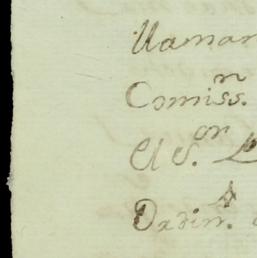 llaman
Comiss.n
El S.or
Ordin.s